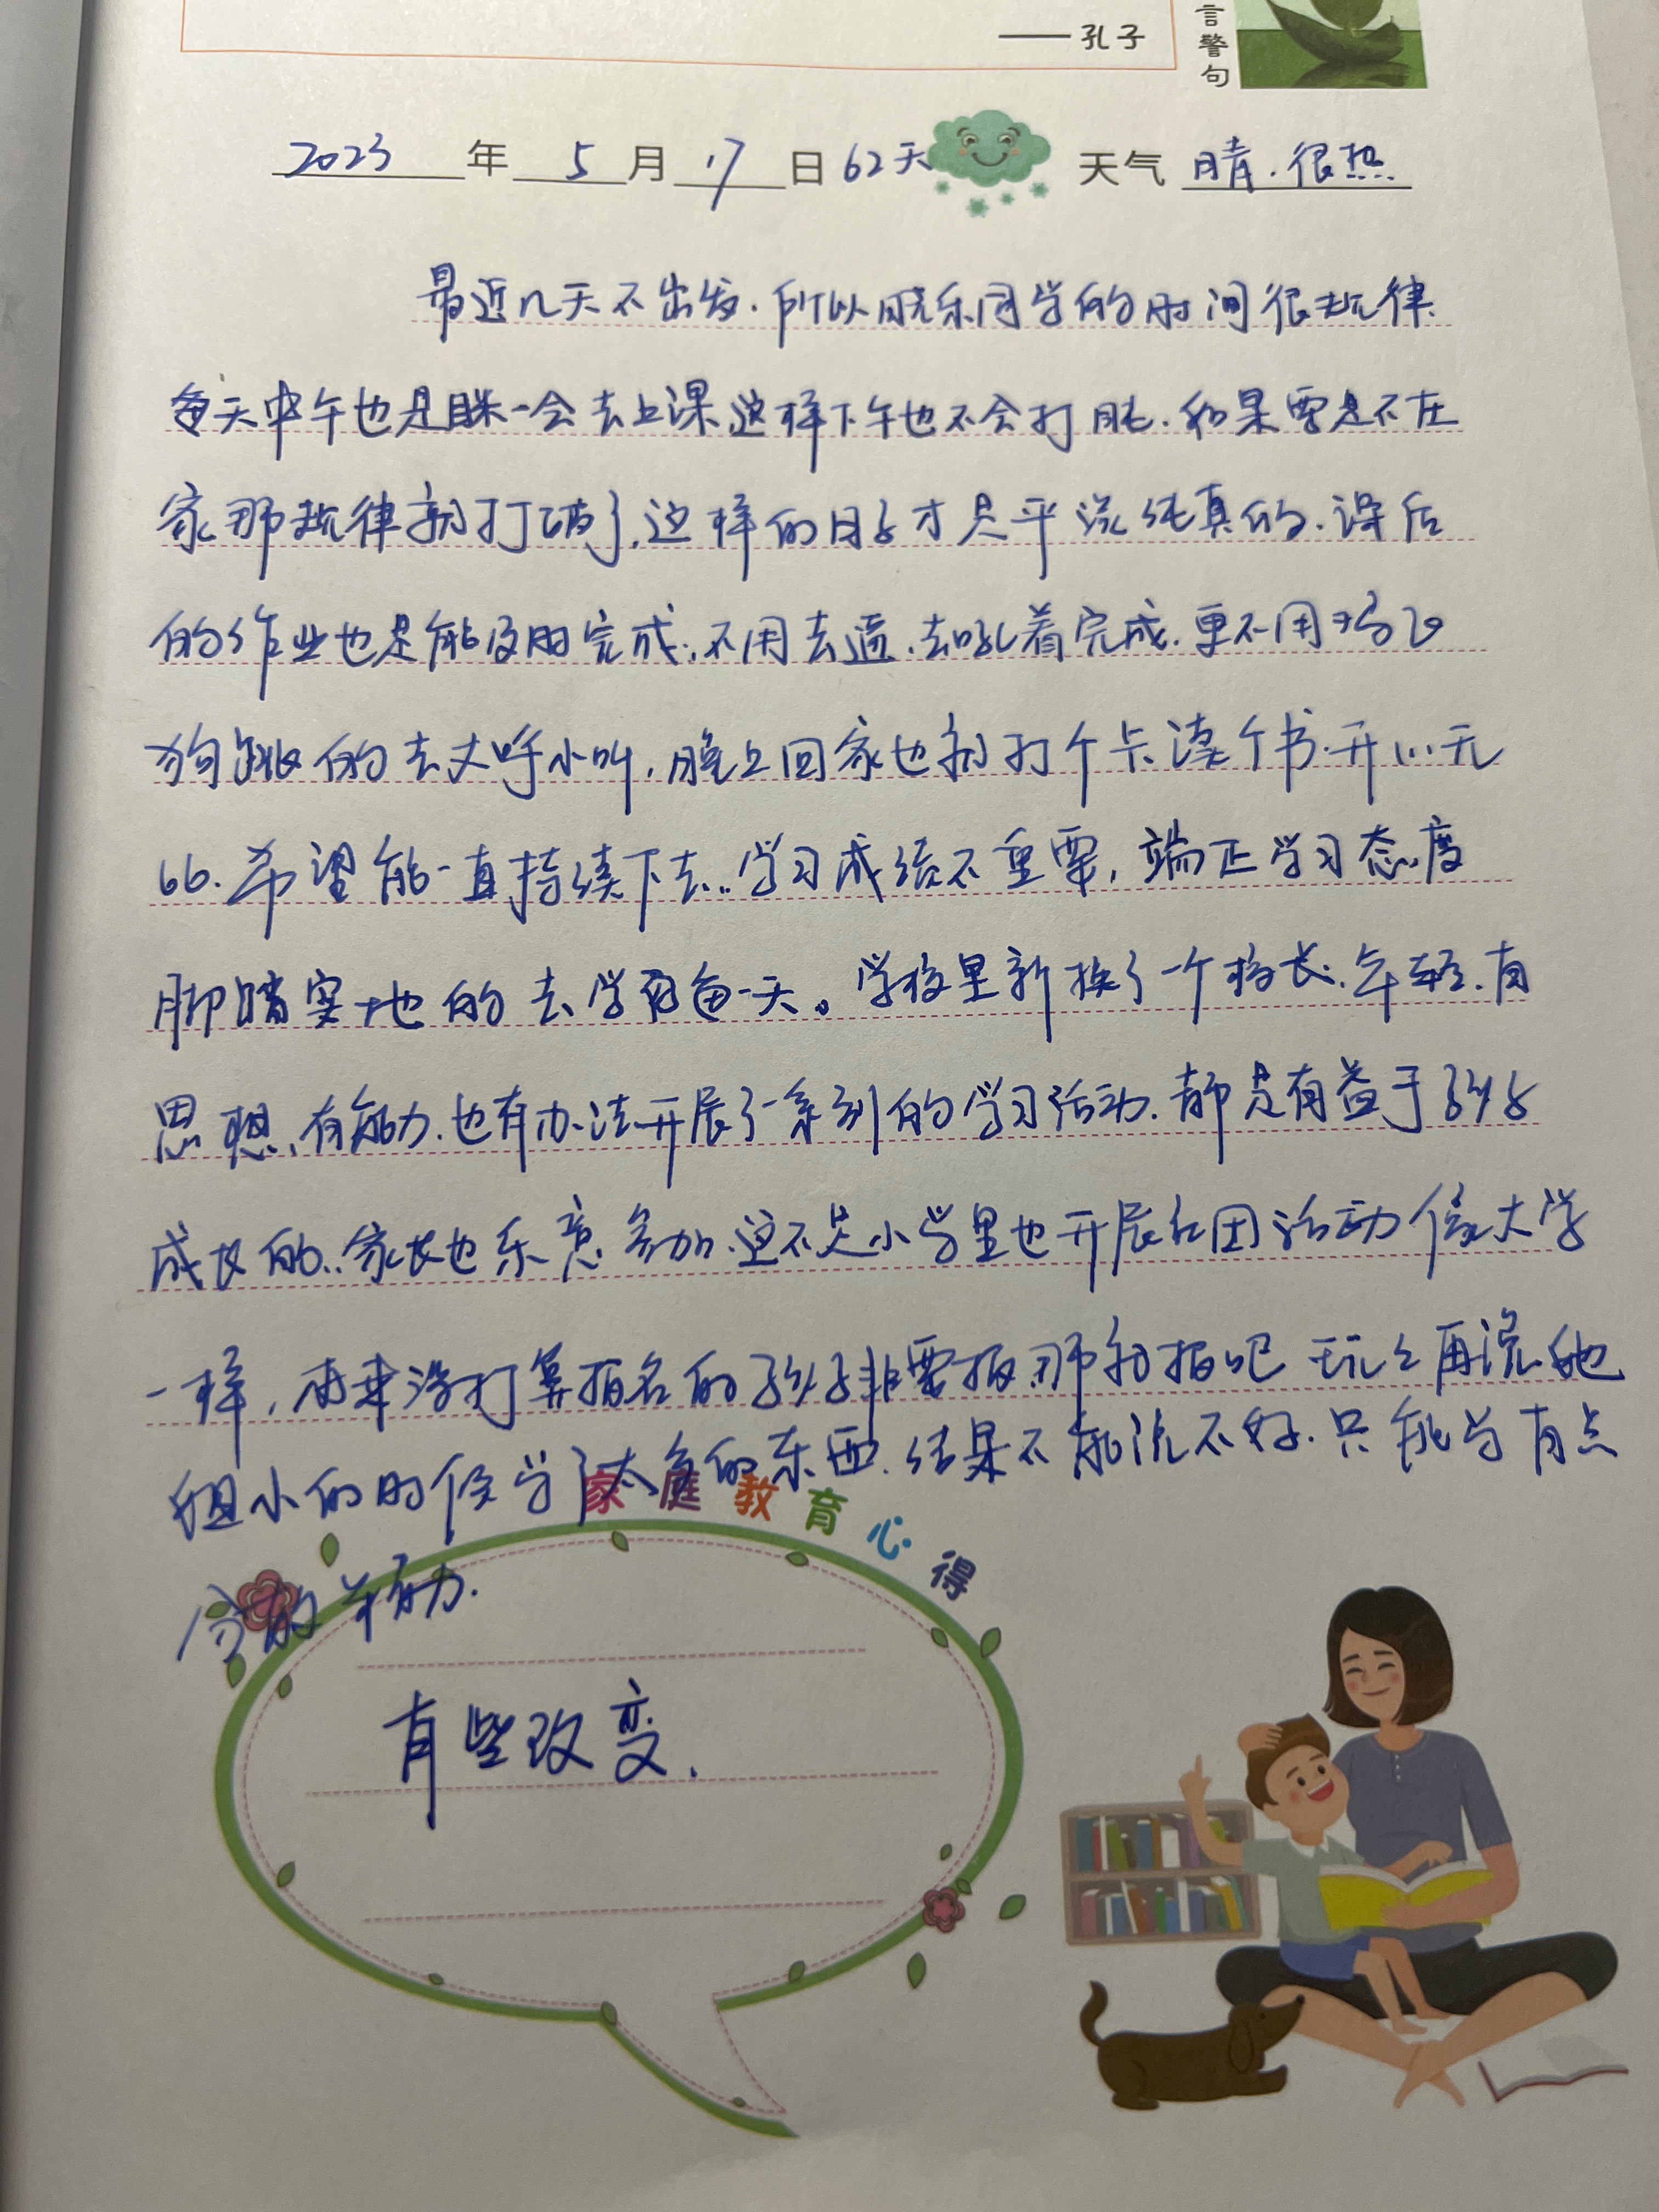 ——孔子
言警句
2023年5月17日62天 天气 晴.很热
最近几天不出发.所以晓乐同学的时间很规律.
每天中午也是眯一会去上课,这样下午也不会打盹.如果要是不在
家那规律就打破了,这样的日子才是平淡纯真的.课后
的作业也是能及时完成.不用去逼.去吼着完成.更不用鸡飞
狗跳的去大呼小叫,晚上回家也就打个卡读个书.开心无
比.希望能一直持续下去..学习成绩不重要,端正学习态度
脚踏实地的去学好每一天。学校里新换了一个校长.年轻.有
思想.有能力.也有办法开展了一系列的学习活动.都是有益于孩子
成长的..家长也乐意参加.这不是小学里也开展社团活动像大学
一样,本来没打算报名的孩子非要报.那就报吧 玩玩再说.她
姐小的时候学了太多的东西.结果不能说不好.只能当有点
家庭教育心得
有些改变.